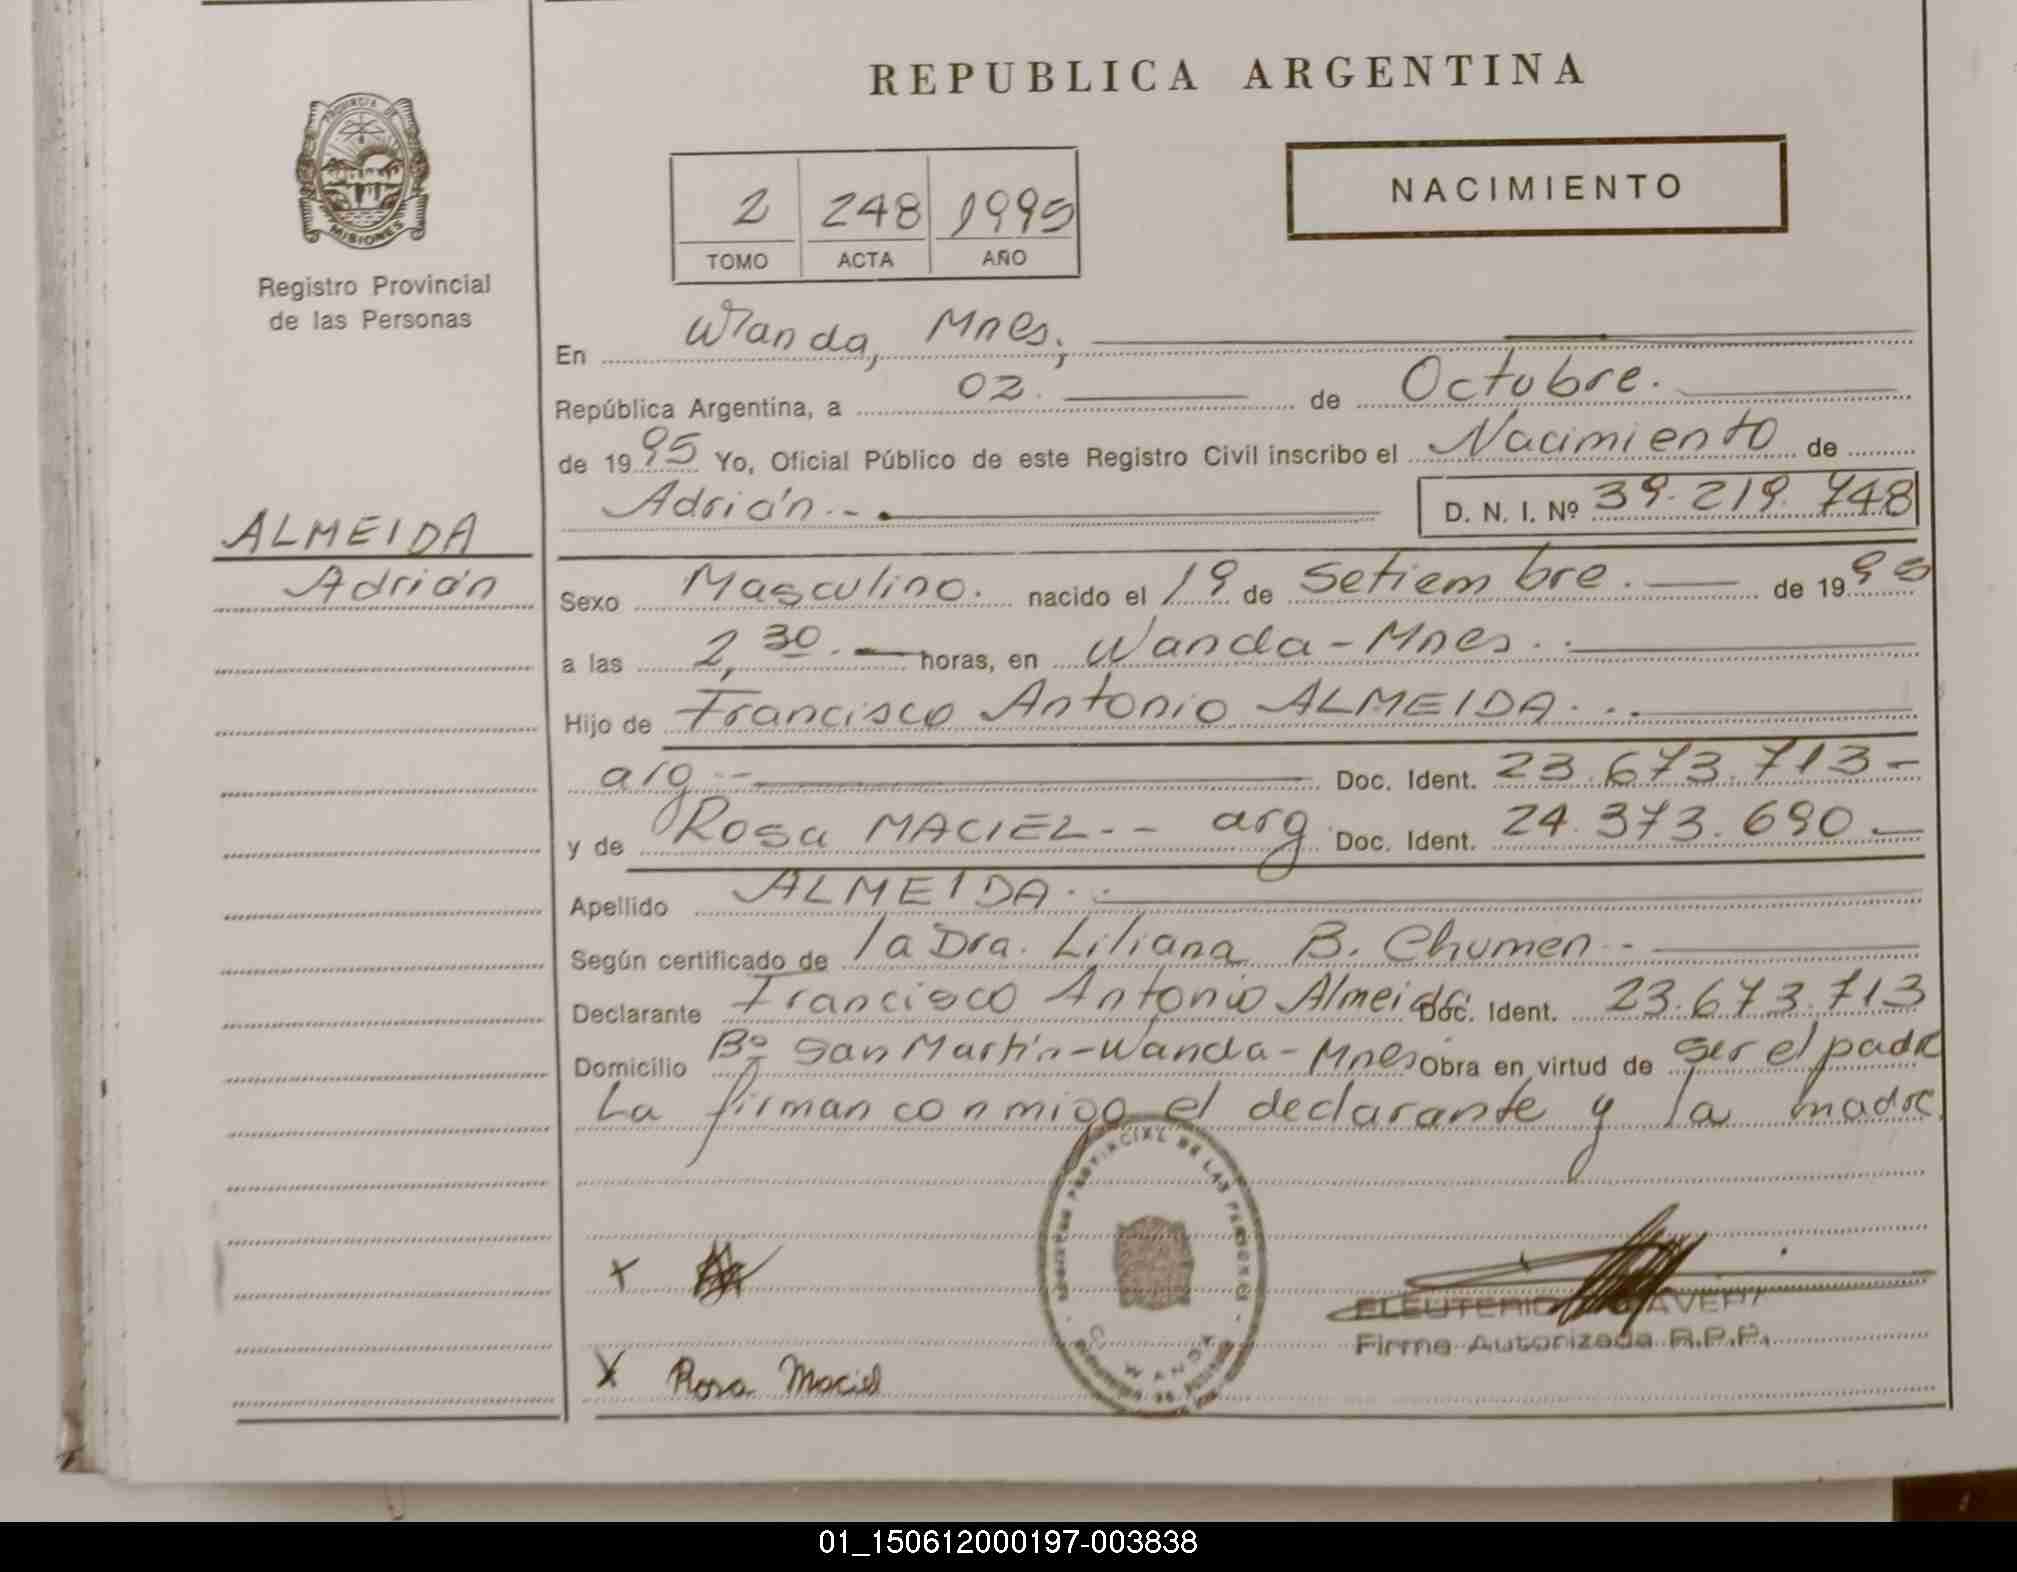 REPUBLICA ARGENTINA
PROVINCIA DE
MISIONES
Registro Provincial
de las Personas
NACIMIENTO
2 248 1995
TOMO ACTA AÑO
En Wanda, Mnes.
República Argentina, a 02. de Octubre.
de 1995 Yo, Oficial Público de este Registro Civil inscribo el Nacimiento de
Adrián.- D. N. I. Nº 39.219.748
ALMEIDA
Adrián
Sexo Masculino. nacido el 19 de Setiembre. de 1995
a las 2,30. horas, en Wanda-Mnes.
Hijo de Francisco Antonio ALMEIDA.
arg.- Doc. Ident. 23.673.713-
y de Rosa MACIEL.- arg. Doc. Ident. 24.373.690.-
Apellido ALMEIDA.
Según certificado de la Dra. Liliana B. Chumen.-
Declarante Francisco Antonio Almeida Doc. Ident. 23.673.713
Domicilio Bº San Martín-Wanda-Mnes Obra en virtud de ser el padre
La firman conmigo el declarante y la madre.
PROVINCIAL DE LAS PERSONAS
WANDA
X
X Rosa Maciel
ELEUTERIO
Firma Autorizada R.P.P.
01_150612000197-003838